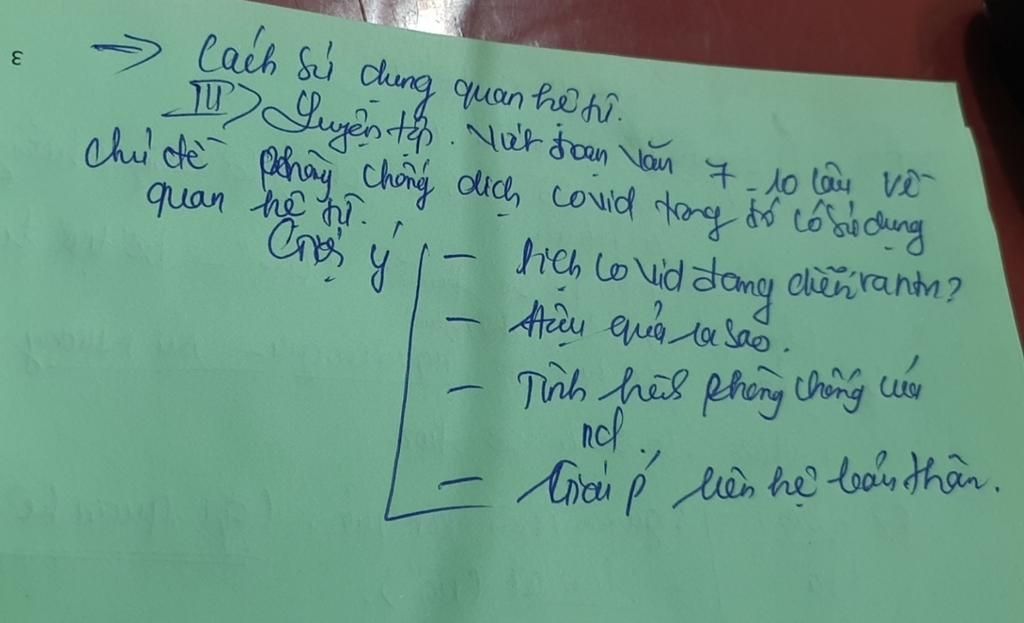 3
=> Cách sử dụng quan hệ từ.
III) Luyện tập. Viết đoạn văn 7-10 câu về
chủ đề phòng chống dịch covid trong đó có sử dụng
quan hệ từ.
Gợi ý
- Dịch covid đang diễn ra ntn?
- Hậu quả ra sao.
- Tình hình phòng chống của
nd.
- Giải p' liên hệ bản thân.